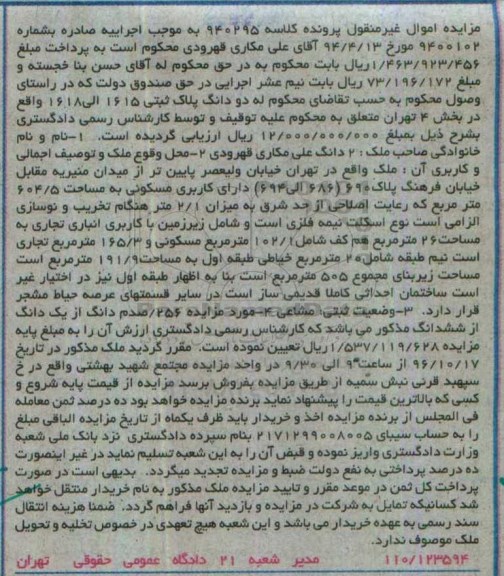 مزایده اموال غیرمنقول پرونده کلاسه ۹۴۰۲۹۵ به موجب اجراییه صادره بشماره
۹۴۰۰۱۰۲ مورخ ۹۴/۴/۱۳ آقای علی مکاری قهرودی محکوم است به پرداخت مبلغ
۱/۴۶۳/۹۲۳/۴۵۶ریال بابت محکوم به در حق محکوم له آقای حسن بنا خجسته و
مبلغ ۷۳/۱۹۶/۱۷۲ ریال بابت نیم عشر اجرایی در حق صندوق دولت که در راستای
وصول محکوم به حسب تقاضای محکوم له دو دانگ پلاک ثبتی ۱۶۱۵ الی۱۶۱۸ واقع
در بخش ۴ تهران متعلق به محکوم علیه توقیف و توسط کارشناس رسمی دادگستری
بشرح ذیل بمبلغ ۱۲/۰۰۰/۰۰۰/۰۰۰ ریال ارزیابی گردیده است. ۱-نام و نام
خانوادگی صاحب ملک : ۲ دانگ علی مکاری قهرودی ۲-محل وقوع ملک و توصیف اجمالی
و کاربری آن : ملک واقع در تهران خیابان ولیعصر پایین تر از میدان منیریه مقابل
خیابان فرهنگ پلاک۶۹۰ (۶۸۶ الی۶۹۴) دارای کاربری مسکونی به مساحت ۶۰۴/۵
متر مربع که رعایت اصلاحی از حد شرق به میزان ۲/۱ متر هنگام تخریب و نوسازی
الزامی است نوع اسکلت نیمه فلزی است و شامل زیرزمین با کاربری انباری تجاری به
مساحت۲۶ مترمربع هم کف شامل۱۰۲/۱ مترمربع مسکونی و ۱۶۵/۳ مترمربع تجاری
است نیم طبقه شامل۲۰ مترمربع خیاطی طبقه اول به مساحت۱۹۱/۹ مترمربع است
مساحت زیربنای مجموع ۵۰۵ مترمربع است بنا به اظهار طبقه اول نیز در اختیار غیر
است ساختمان احداثی کاملا قدیمی ساز است در سایر قسمتهای عرصه حیاط مشجر
قرار دارد. ۳-وضعیت ثبتی: مشاعی ۴-مورد مزایده ۲۵۶/صدم دانگ از یک دانگ
از ششدانگ مذکور می باشد که کارشناس رسمی دادگستری ارزش آن را به مبلغ پایه
مزایده ۱/۵۳۷/۱۱۹/۶۲۸ریال تعیین نموده است. مقرر گردید ملک مذکور در تاریخ
۹۶/۱۰/۱۷ از ساعت۹ الی ۹/۳۰ در واحد مزایده مجتمع شهید بهشتی واقع در خ
سپهبد قرنی نبش سمیه از طریق مزایده بفروش برسد مزایده از قیمت پایه شروع و
کسی که بالاترین قیمت را پیشنهاد نماید برنده مزایده خواهد بود ده درصد ثمن معامله
فی المجلس از برنده مزایده اخذ و خریدار باید ظرف یکماه از تاریخ مزایده الباقی مبلغ
را به حساب سیبای ۲۱۷۱۲۹۹۰۰۸۰۰۵ بنام سپرده دادگستری نزد بانک ملی شعبه
وزارت دادگستری واریز نموده و قبض آن را به این شعبه تسلیم نماید در غیر اینصورت
ده درصد پرداختی به نفع دولت ضبط و مزایده تجدید میگردد. بدیهی است در صورت
پرداخت کل ثمن در موعد مقرر و تایید مزایده ملک مذکور به نام خریدار منتقل خواهد
شد کسانیکه تمایل به شرکت در مزایده و بازدید آنها فراهم گردد. ضمنا هزینه انتقال
سند رسمی به عهده خریدار می باشد و این شعبه هیچ تعهدی در خصوص تخلیه و تحویل
ملک موصوف ندارد.
۱۱۰/۱۲۳۵۹۴ مدیر شعبه ۲۱ دادگاه عمومی حقوقی تهران